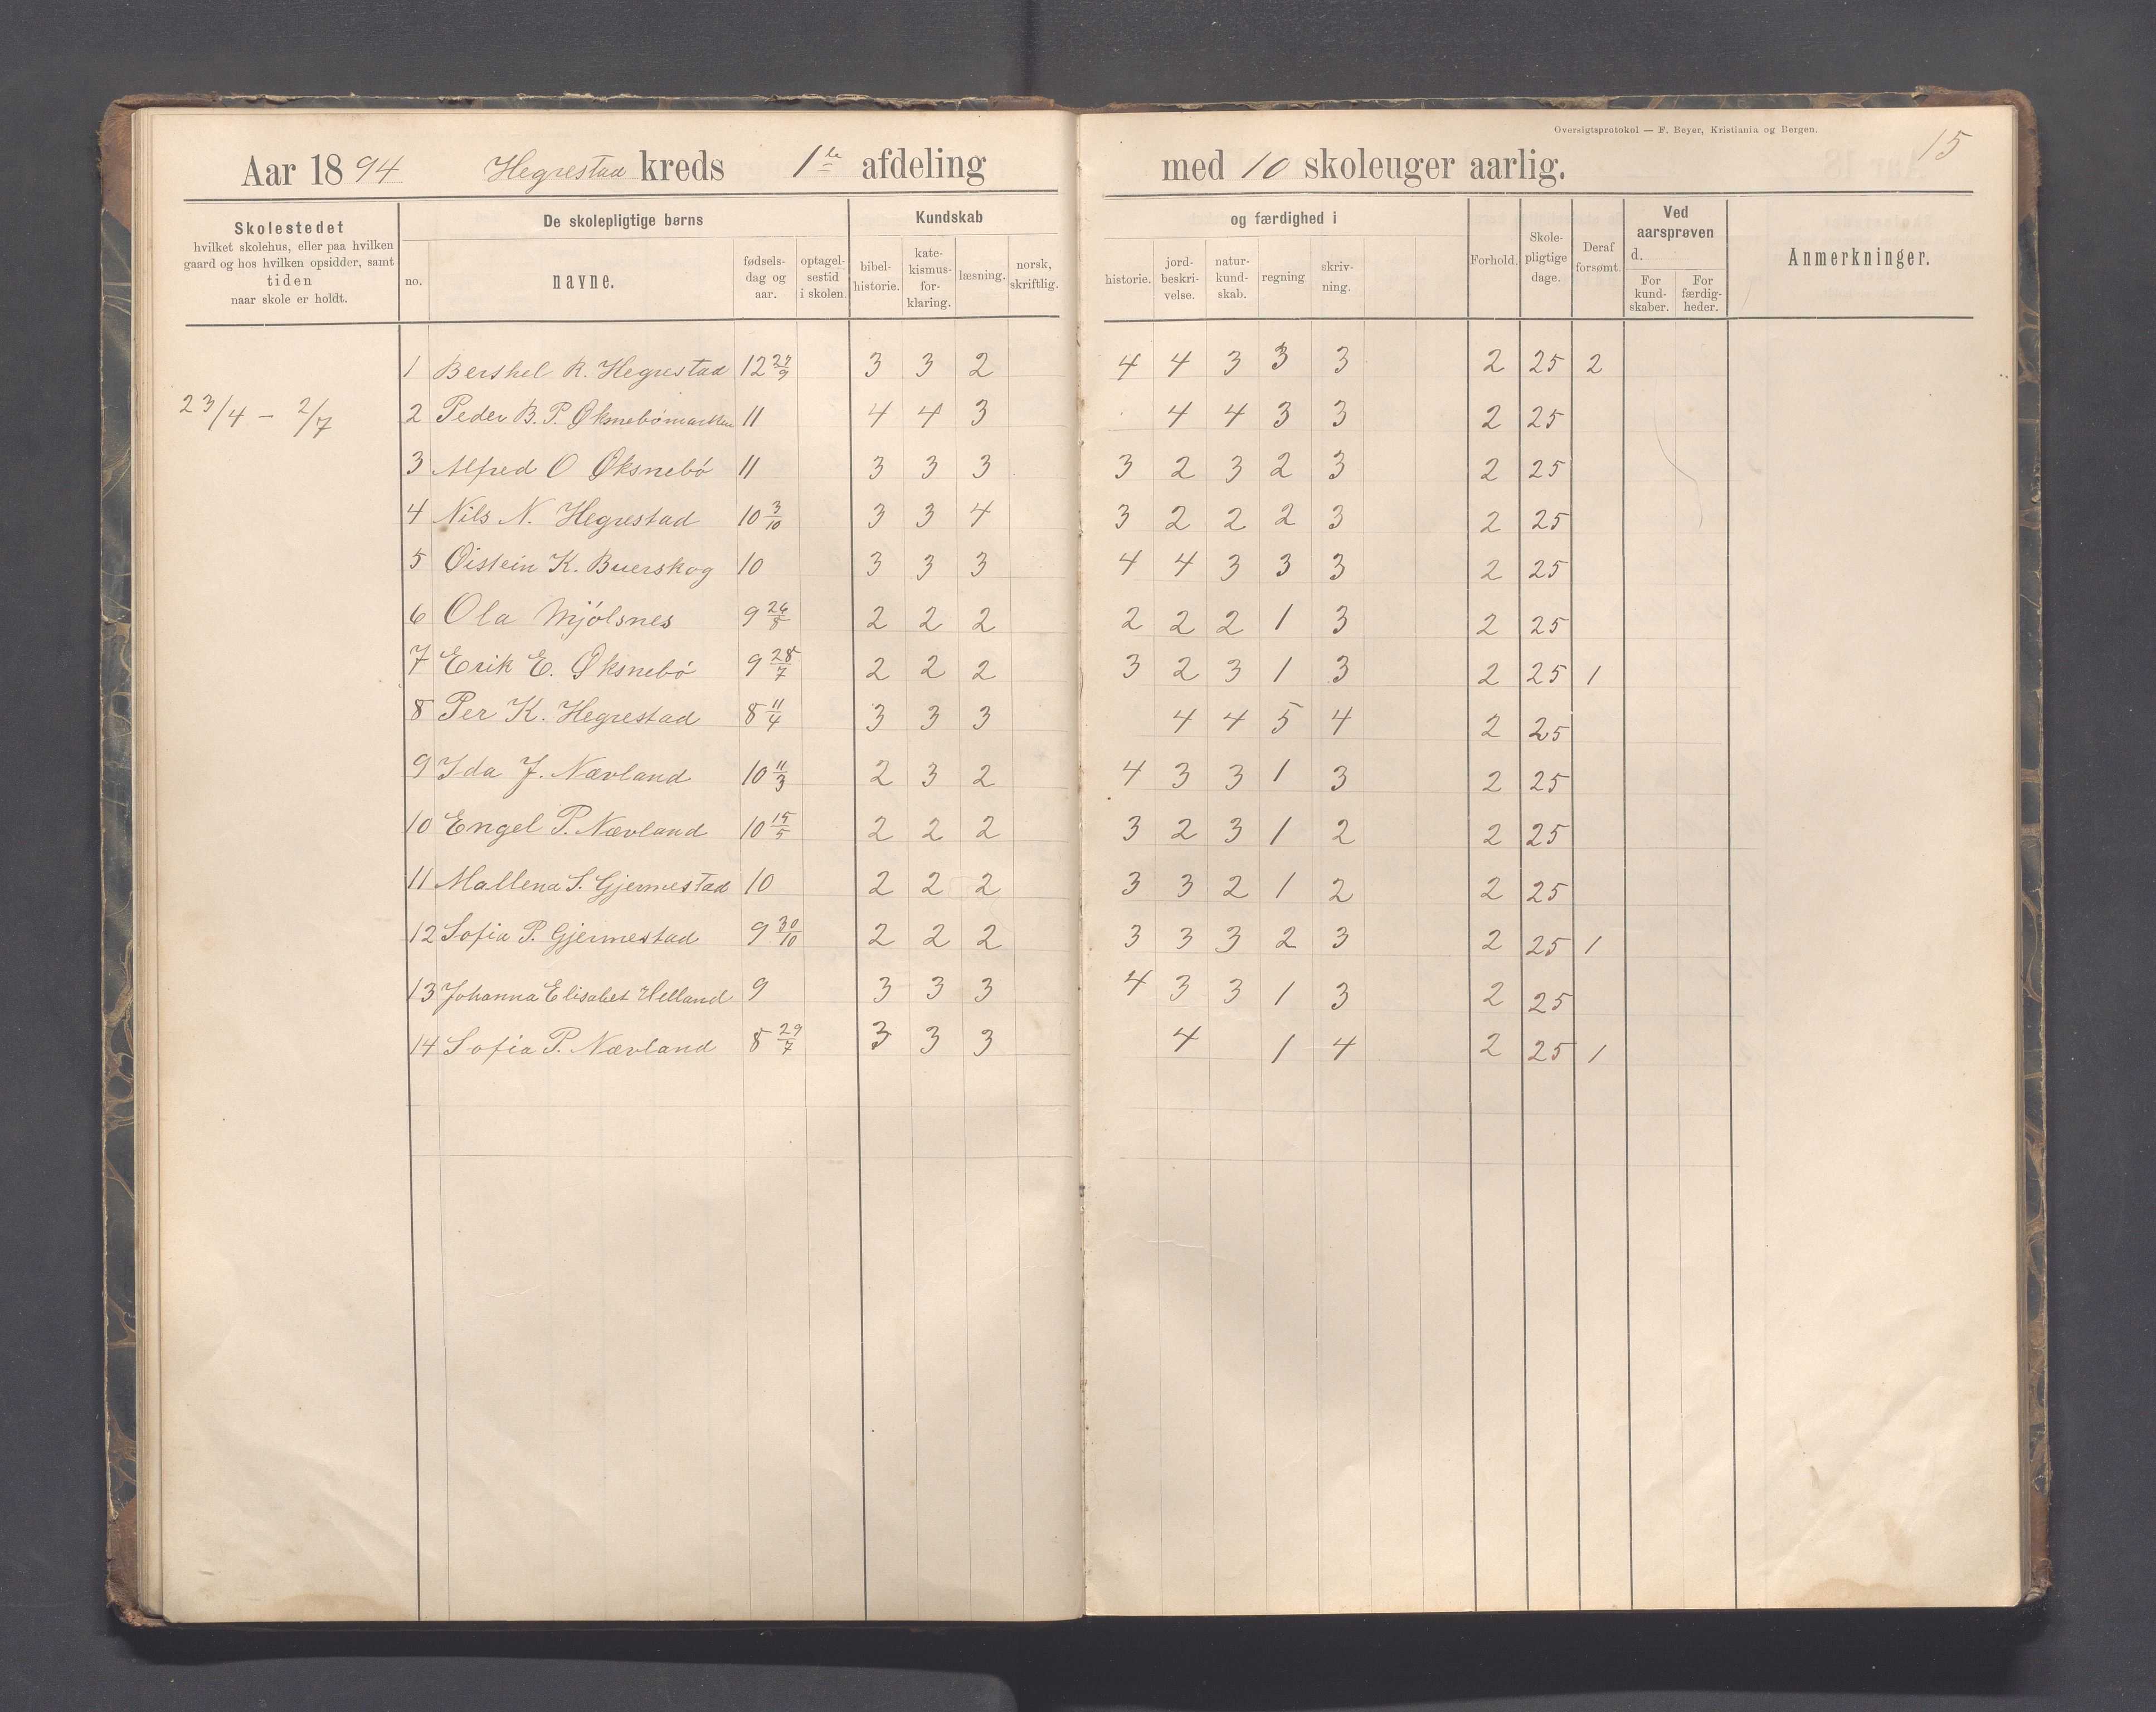 Oversigtsprotokol — F. Beyer, Kristiania og Bergen.
15
Aar 1894 Hegrestad kreds 1ste afdeling med 10 skoleuger aarlig.
Skolestedet
hvilket skolehus, eller paa hvilken
gaard og hos hvilken opsidder, samt
tiden
naar skole er holdt.
De skolepligtige børns
no.
navne.
fødsels-
dag og
aar.
optagel-
sestid
i skolen.
Kundskab
bibel-
historie.
kate-
kismus-
for-
klaring.
læsning.
norsk,
skriftlig.
og færdighed i
historie.
jord-
beskri-
velse.
natur-
kund-
skab.
regning
skriv-
ning.
Forhold.
Skole-
pligtige
dage.
Deraf
forsømt.
Ved
aarsprøven
d.
For
kund-
skaber.
For
færdig-
heder.
Anmerkninger.
1 Bershel R. Hegrestad 12 27/9 3 3 2 4 4 3 3 3 2 25 2
23/4 - 2/7
2 Peder B. P. Øksnebømarken 11 4 4 3 4 4 3 3 2 25
3 Alfred O Øksnebø 11 3 3 3 3 2 3 2 3 2 25
4 Nils N. Hegrestad 10 3/10 3 3 4 3 2 2 2 3 2 25
5 Øistein K. Buerskog 10 3 3 3 4 4 3 3 3 2 25
6 Ola Mjølsnes 9 26/8 2 2 2 2 2 2 1 3 2 25
7 Erik E. Øksnebø 9 28/7 2 2 2 3 2 3 1 3 2 25 1
8 Per K. Hegrestad 8 11/4 3 3 3 4 4 5 4 2 25
9 Ida J. Nævland 10 11/3 2 3 2 4 3 3 1 3 2 25
10 Engel P. Nævland 10 15/5 2 2 2 3 2 3 1 2 2 25
11 Mallena S. Gjermestad 10 2 2 2 3 3 2 1 2 2 25
12 Sofia P. Gjermestad 9 30/10 2 2 2 3 3 3 2 3 2 25 1
13 Johanna Elisabet Helland 9 3 3 3 4 3 3 1 3 2 25
14 Sofia P. Nævland 8 29/7 3 3 3 4 1 4 2 25 1